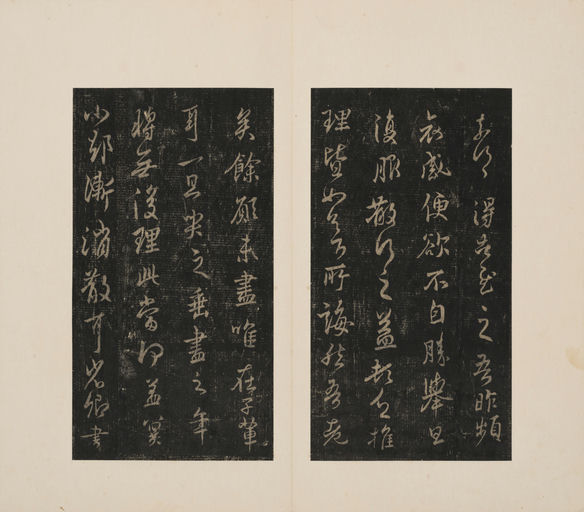 得之吾昨頻
哀感便欲不自勝舉旦
復服散行之益頓乏推
理皆如足下所誨然吾老
矣餘願未盡唯在子輩
耳一旦哭之垂盡之年
將無復理此當何益冥
小却漸消散耳省卿書